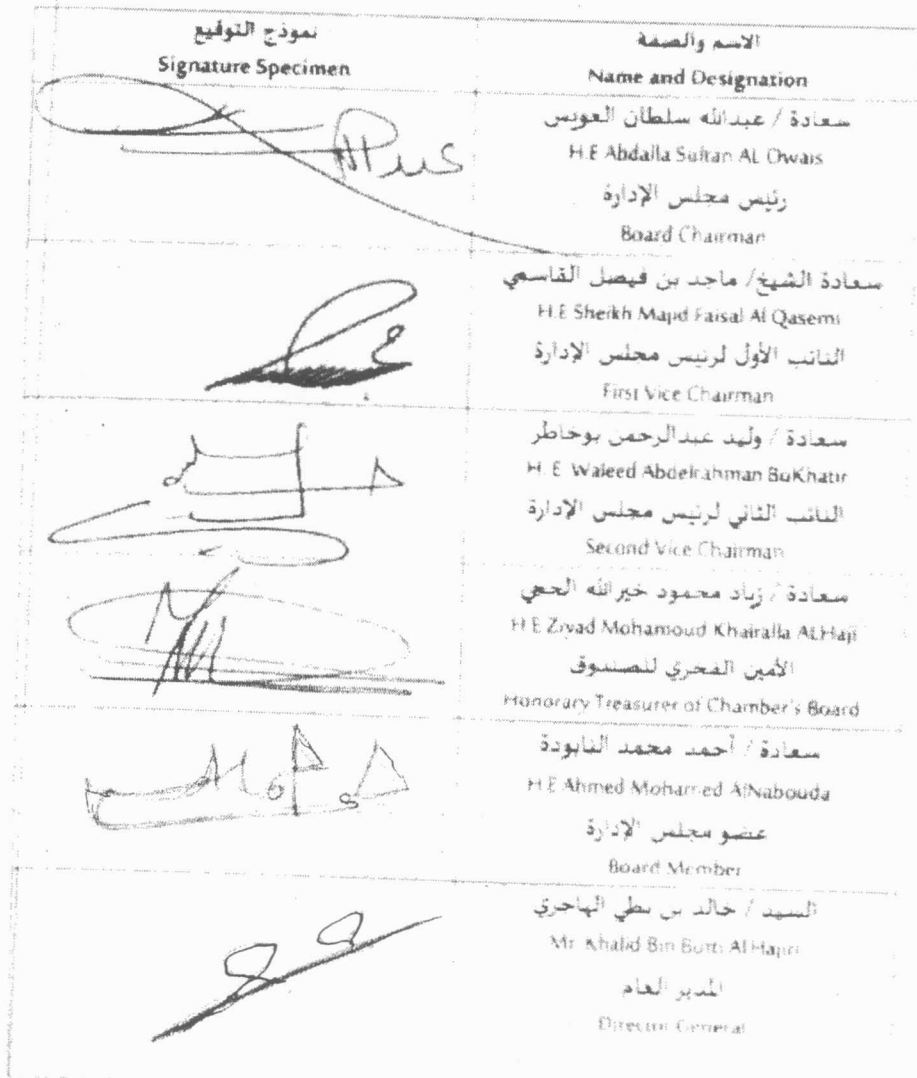 نموذج التوقيع
Signature Specimen
الاسم والصفة
Name and Designation
سعادة / عبدالله سلطان العويس
H.E Abdalla Sultan AL Owais
رئيس مجلس الإدارة
Board Chairman
سعادة الشيخ/ ماجد بن فيصل القاسمي
H.E Sheikh Majid Faisal Al Qasemi
النائب الأول لرئيس مجلس الإدارة
First Vice Chairman
سعادة / وليد عبدالرحمن بوخاطر
H. E Waleed Abdelrahman BuKhatir
النائب الثاني لرئيس مجلس الإدارة
Second Vice Chairman
سعادة / زياد محمود خيرالله الحجي
H E Ziyad Mohamoud Khairalla ALHaji
الأمين الفخري للصندوق
Honorary Treasurer of Chamber's Board
سعادة / أحمد محمد النابودة
H E Ahmed Mohamed AlNabouda
عضو مجلس الإدارة
Board Member
السيد / خالد بن بطي الهاجري
Mr. Khalid Bin Butti Al Hajiri
المدير العام
Director General